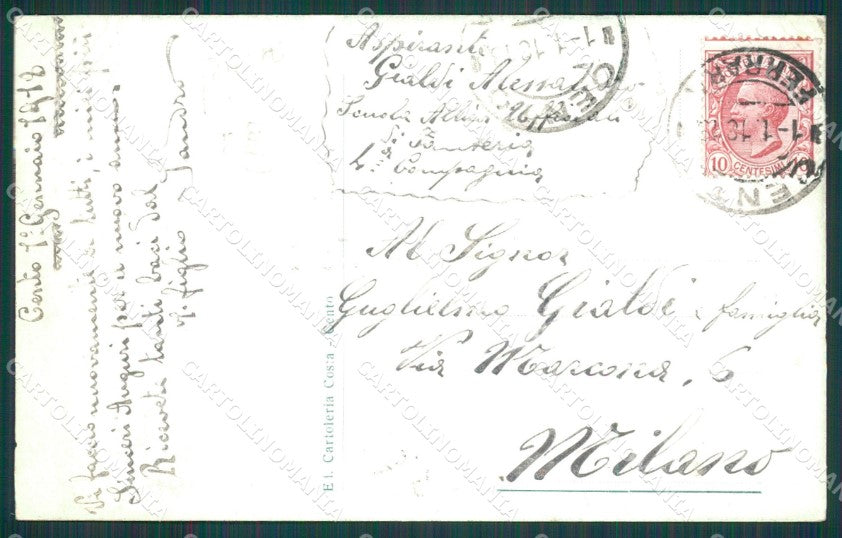 Cento 1° Gennaio 1912
Vi faccio nuovamente a tutti, i miei più
Sinceri Auguri per il nuovo anno.
Ricevete tanti baci dal
vs figlio Sandro
Aspirante
Gialdi Alessandro
Scuola Allievi Ufficiali
di Fanteria
4a Compagnia
Al Signor
Guglielmo Gialdi e famiglia
Via Marcona, 6
Milano
Ed. Cartoleria Costa - Cento
10 CENTESIMI
CENTO
FERRARA
CARTOLINOMANIA